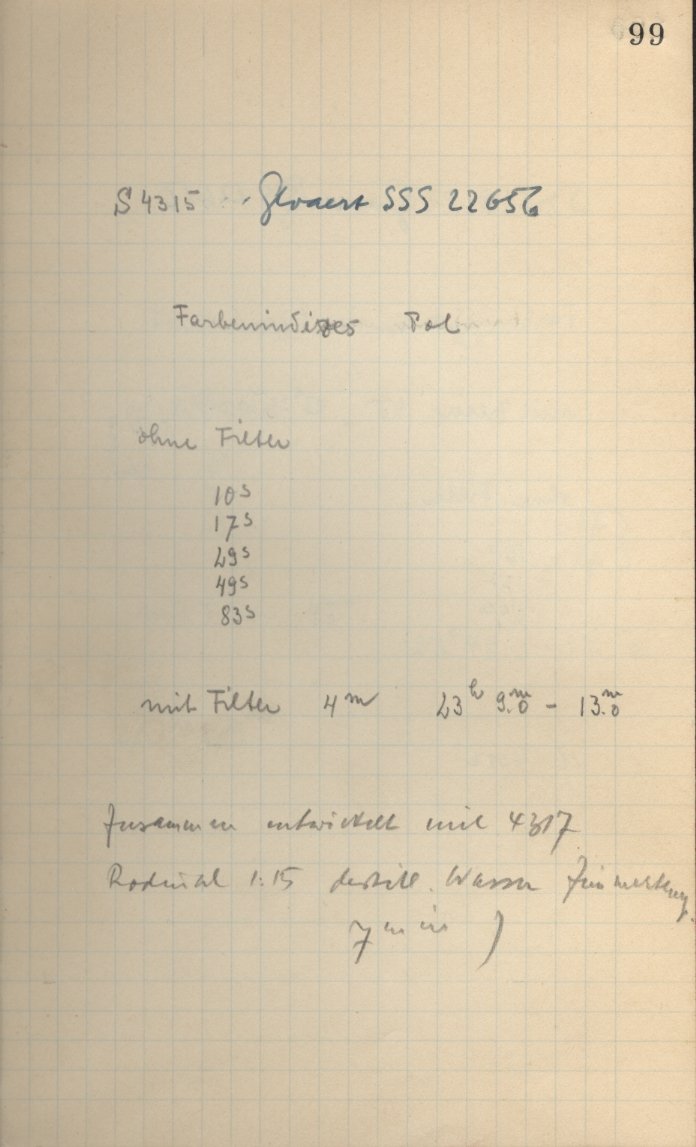 99
S 4315 Gevaert SSS 22656
Farbenindizes Pol
ohne Filter
10s
17s
29s
49s
83s
mit Filter 4m 23h 9m.0 - 13m.0
Zusammen entwickelt mit 4317
Rodinal 1:15 destill. Wasser
7 min )